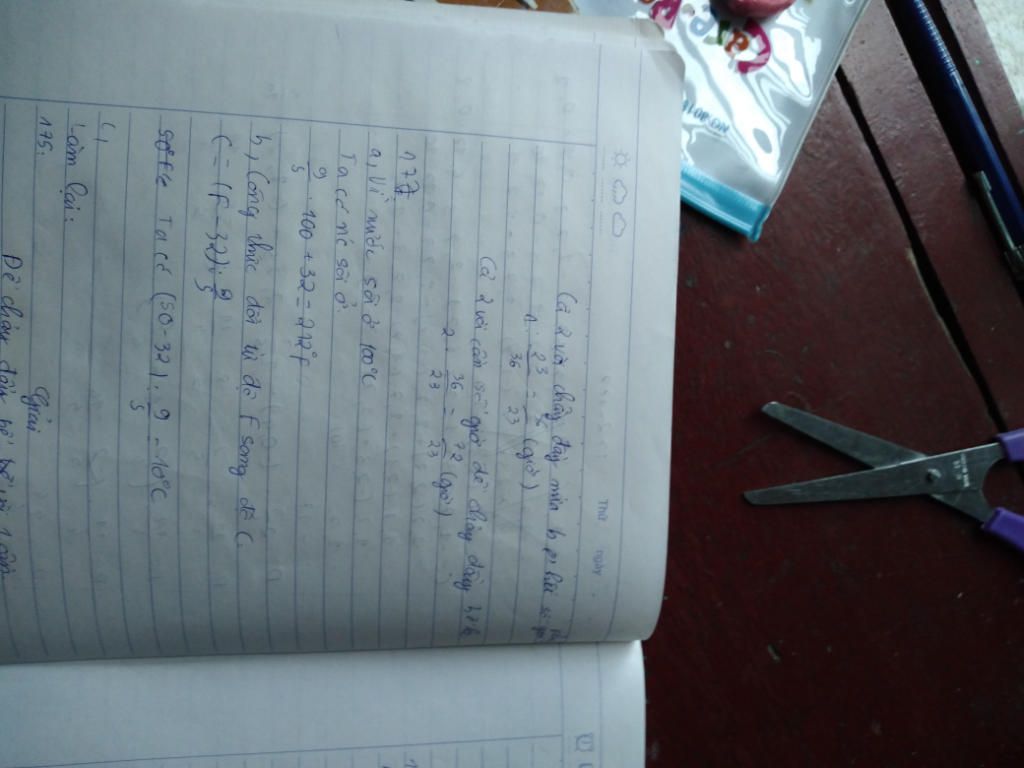 Thứ ngày
Cả 2 vòi chảy đầy nửa b
1 : 23/36 = 36/23 (giờ)
Cả 2 vòi cần số giờ để chảy đầy bể
2 . 36/23 = 72/23 (giờ)
177
a, Vì nước sôi ở 100°C
Ta có nc sôi ở
9/5 . 100 + 32 = 212°F
b, Công thức đổi từ độ F sang độ C.
C = (F - 32) : 9/5
50°F Ta có (50-32) : 9/5 = 10°C
c,
Làm lại:
175:
Giải
Để chảy đầy bể
NO:8019